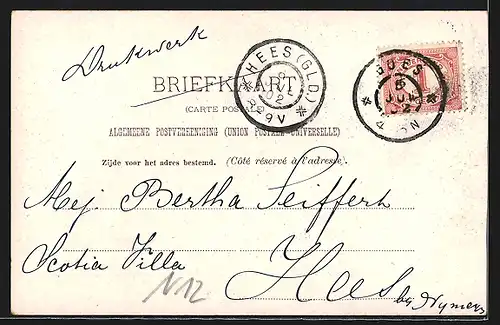 Drukwerk
HEES (GLD.)
02
8-9V
BRIEFKAART
(CARTE POSTALE)
ALGEMEENE POSTVEREENIGING (UNION POSTALE UNIVERSELLE)
Zijde voor het adres bestemd. (Côté réservé à l'adresse).
Mej Bertha Seiffert
Scotia Villa
Hees
by Nymegen
N12